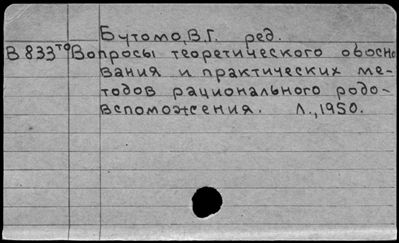 Бутомо, В.Г. ред.
В 833то Вопросы теоретического обосно
вания и практических ме-
тодов рационального родо-
вспоможения. Л., 1950.